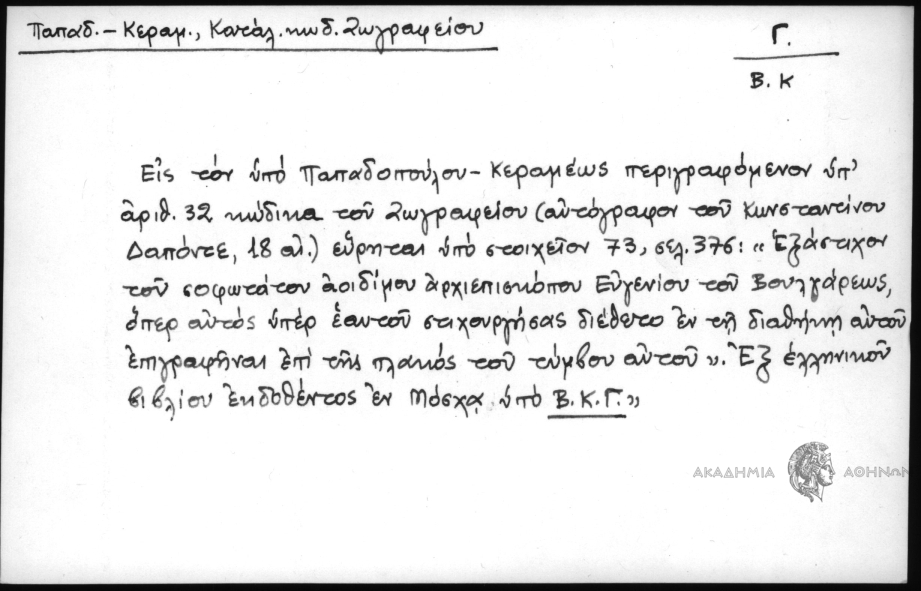 Παπαδ. – Κεραμ., Κατάλ. κωδ. Ζωγραφείου
Γ.
Β. Κ
Εἰς τόν ὑπό Παπαδοπούλου – Κεραμέως περιγραφόμενον ὑπ'
ἀριθ. 32 κώδικα τοῦ Ζωγραφείου (αὐτόγραφον τοῦ Κωνσταντίνου
Δαπόντε, 18 αἰ.) εὕρηται ὑπό στοιχεῖον 73, σελ. 376: « Ἑξάστιχον
τοῦ σοφωτάτου ἀοιδίμου ἀρχιεπισκόπου Εὐγενίου τοῦ Βουλγάρεως,
ὅπερ αὐτός ὑπέρ ἑαυτοῦ στιχουργήσας διέθετο ἐν τῇ διαθήκῃ αὐτοῦ
ἐπιγραφῆναι ἐπί τῆς πλακός τοῦ τύμβου αὐτοῦ ». Ἐξ ἑλληνικοῦ
βιβλίου ἐκδοθέντος ἐν Μόσχᾳ ὑπό Β. Κ. Γ. »
ΑΚΑΔΗΜΙΑ ΑΘΗΝΩΝ